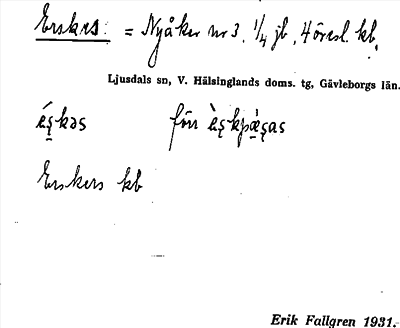 Erskrs: = Nyåker nr 3. 1/4 jb, 4 öresl. kb.
Ljusdals sn, V. Hälsinglands doms. tg, Gävleborgs län.
förr
Erskers kb
Erik Fallgren 1931.